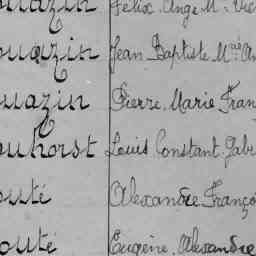 ouazin Félix Ange M. Vic
ouazin Jean Baptiste M.
ouazin Pierre Marie Fran
ouhorst Louis Constant Gabr
outé Alexandre Franço
outé Eugène Alexandre